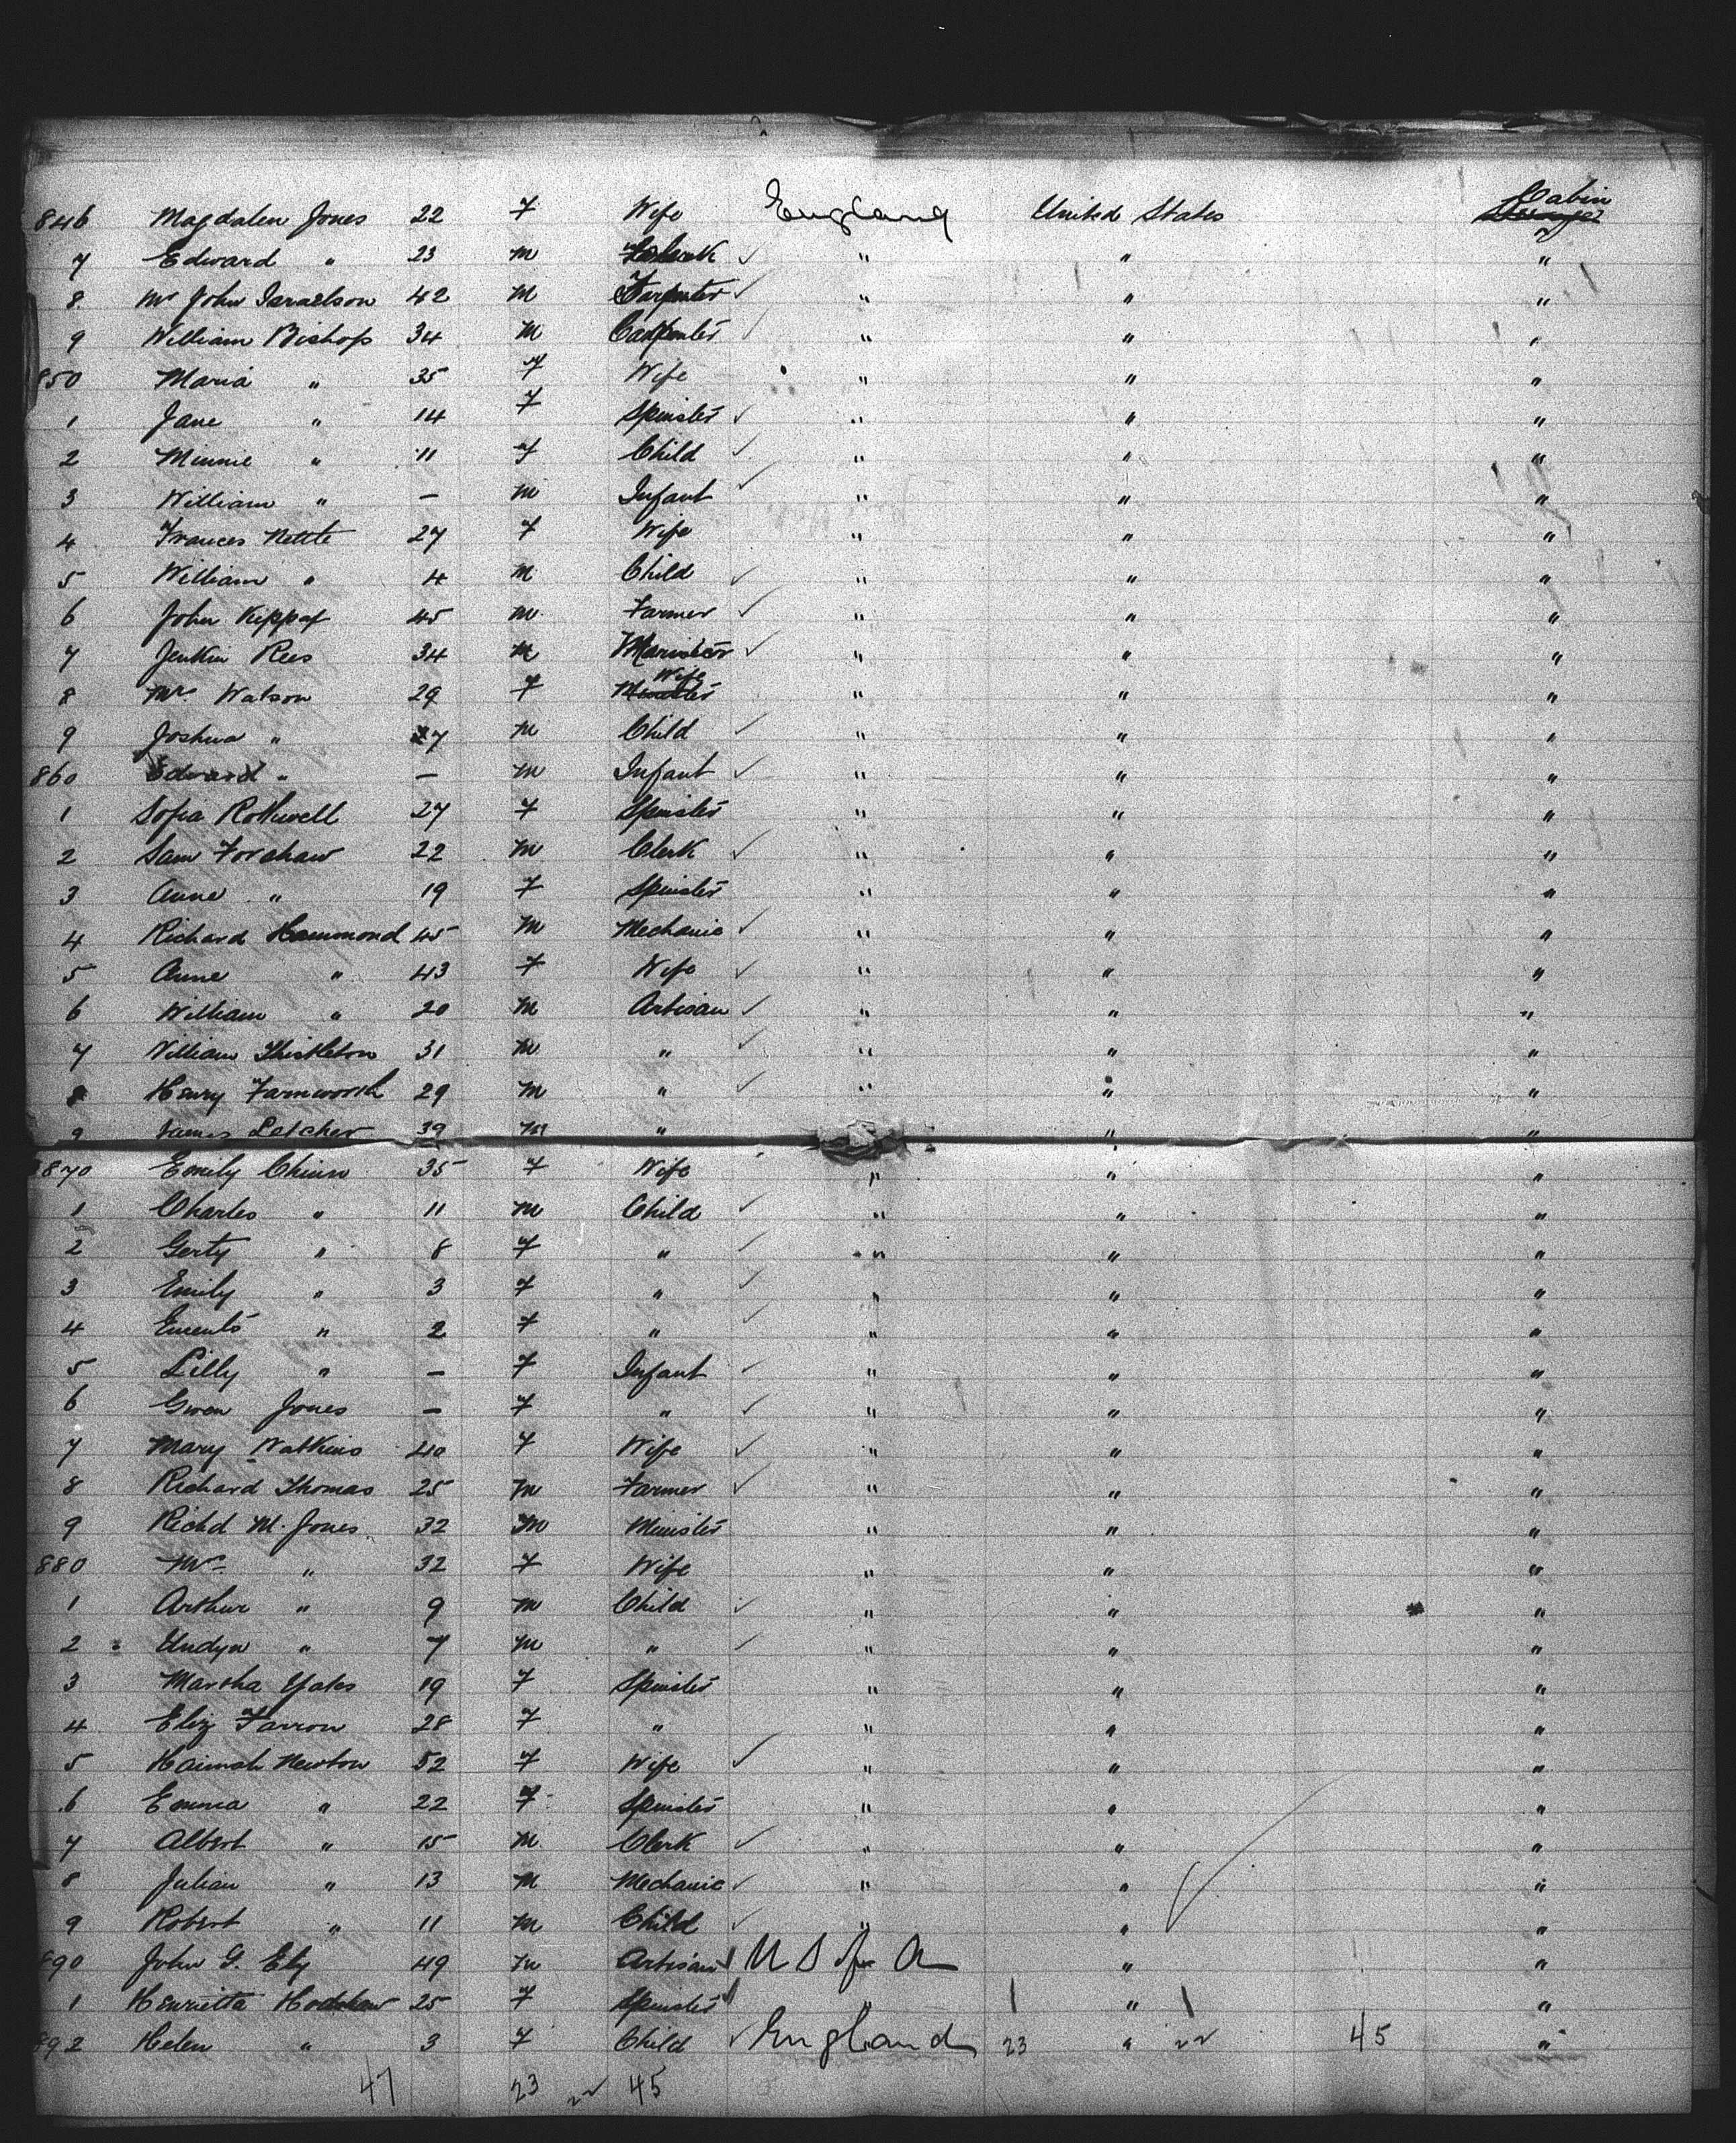 Cabin
846 Magdalen Jones 22 F Wife England United States
7 Edward " 23 M Clerk " " "
8 Mr John Israelson 42 M " " "
9 William Bishop 34 M Carpenter " " "
850 Maria " 35 F Wife " " "
1 Jane " 14 F Spinster " " "
2 Minnie " 11 F Child " " "
3 William " — M Infant " " "
4 Frances Nettle 27 F Wife " " "
5 William " 4 M Child " " "
6 John Kippax 45 M Farmer " " "
7 Jenkin Rees 34 M " " "
8 Mrs Watson 29 F Wife " " "
9 Joshua " 7 M Child " " "
860 Edward " — M Infant " " "
1 Sofia Rothwell 27 F Spinster " " "
2 Sam Forshaw 22 M Clerk " " "
3 Anne " 19 F Spinster " " "
4 Richard Hammond 45 M Mechanic " " "
5 Anne " 43 F Wife " " "
6 William " 20 M Artisan " " "
7 William Thistleton 31 M " " " "
8 Henry Farnworth 29 M " " " "
9 James Letcher 39 M " " "
870 Emily Chinn 35 F Wife " " "
1 Charles " 11 M Child " " "
2 Gerty " 8 F " " " "
3 Emily " 3 F " " " "
4 " 2 F " " " "
5 Lilly " — F Infant " " "
6 Gwen Jones — F " " " "
7 Mary Watkins 40 F Wife " " "
8 Richard Thomas 25 M Farmer " " "
9 Richd M. Jones 32 M Minister " " "
880 Mrs " 32 F Wife " " "
1 Arthur " 9 M Child " " "
2 " 7 M " " " "
3 Martha Yates 19 F Spinster " " "
4 Eliz Farron 28 F " " " "
5 Hannah Newton 52 F Wife " " "
6 Emma " 22 F Spinster " " "
7 Albert " 15 M Clerk " " "
8 Julian " 13 M Mechanic " " "
9 Robert " 11 M Child " " "
890 John G. Ely 49 M Artisan U S of A " "
1 Henrietta 25 F Spinster " 1 " 1 "
892 Helen " 3 F Child England 23 " 22 45 "
47 23 22 45